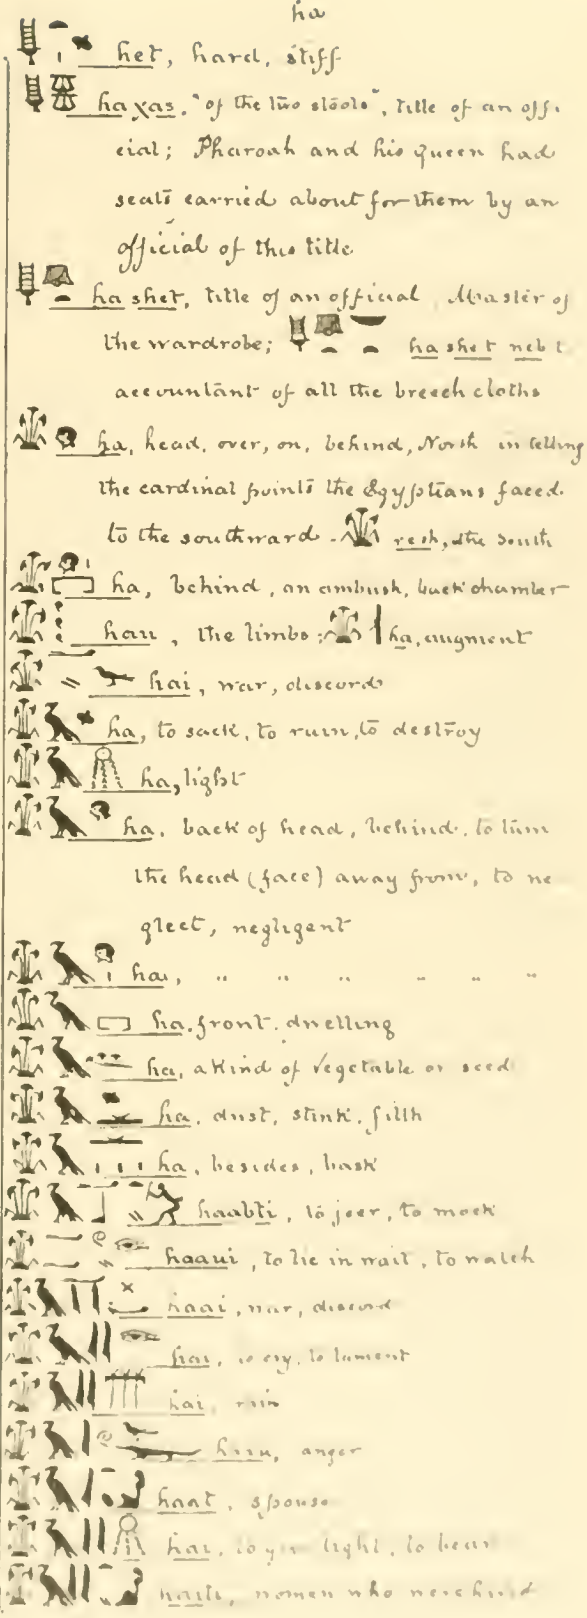 ha
het, hard, stiff
ha χas, "of the two stools", title of an offi-
cial; Pharoah and his queen had
seats carried about for them by an
official of this title
ha shet, title of an official, Master of
the wardrobe; ha shet neb t
accountant of all the breech cloths
ha, head, over, on, behind, North in telling
the cardinal points the Egyptians faced
to the southward - resh, the South
ha, behind, an ambush, back chamber
hau, the limbs; ha, augment
hai, war, discord
ha, to sack, to ruin, to destroy
ha, light
ha, back of head, behind, to turn
the head (face) away from, to ne
glect, negligent
ha, " " " " " "
ha, front, dwelling
ha, a kind of vegetable or seed
ha, dust, stink, filth
ha, besides, bask
haabti, to jeer, to mock
haaui, to lie in wait, to watch
haai, war, discord
hai, to cry, to lament
hai, ruin
anger
haat, spouse
hai, light, to
haiti, women who